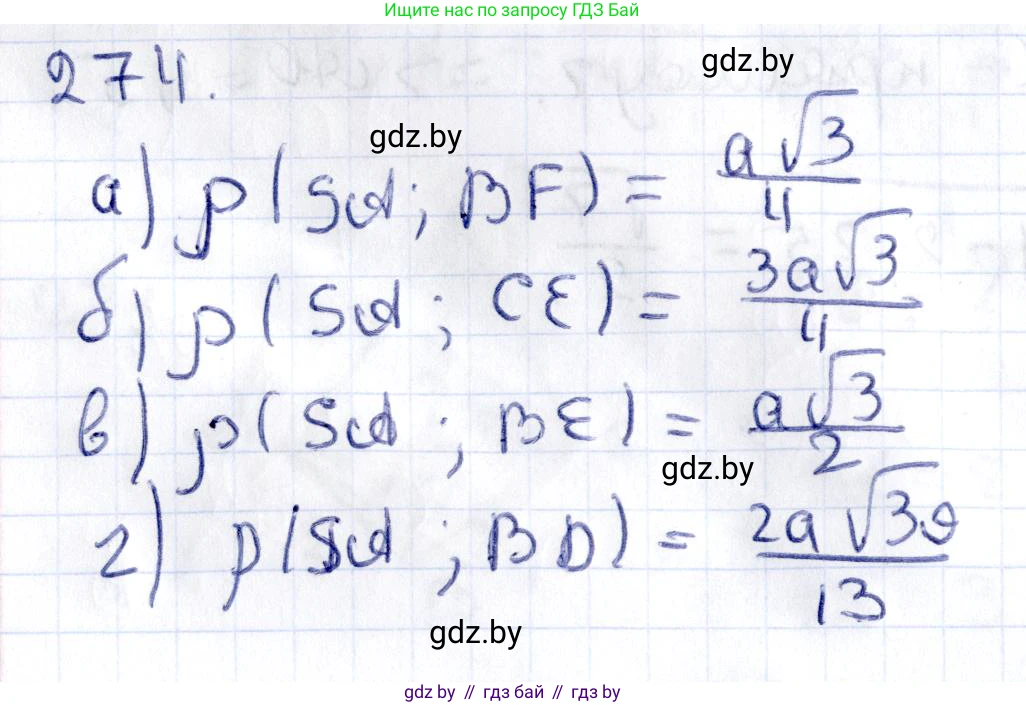 Ищите нас по запросу ГДЗ Бай
274.
gdz.by
gdz.by
а) ρ(SA; BF) = a√3/4
б) ρ(SA; CE) = 3a√3/4
в) ρ(SA; BE) = a√3/2
gdz.by
г) ρ(SA; BD) = 2a√39/13
gdz.by
gdz by // гдз бай // gdz by